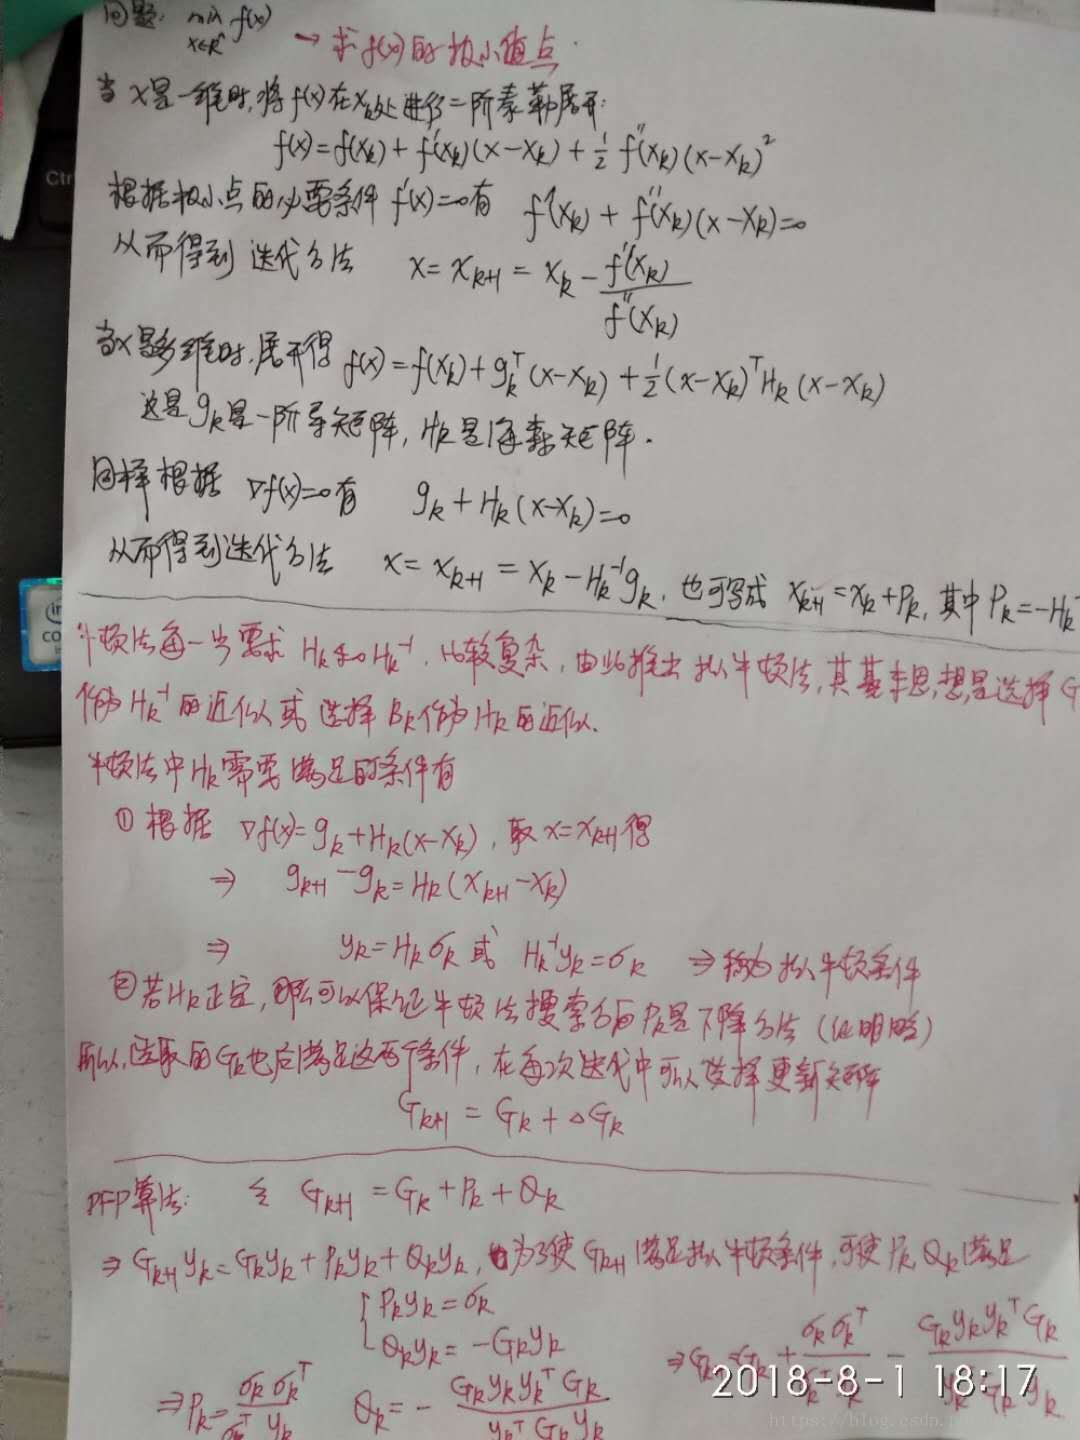 问题: min f(x)
x∈Rⁿ
→ 求f(x)的极小值点.
当x是一维时,将f(x)在xk处进行二阶泰勒展开:
f(x)=f(xk)+f'(xk)(x-xk)+½f''(xk)(x-xk)²
根据极小点的必要条件f'(x)=0有 f'(xk)+f''(xk)(x-xk)=0
从而得到迭代方法 x=xk+1=xk-f'(xk)/f''(xk)
当x是多维时,展开得 f(x)=f(xk)+gkᵀ(x-xk)+½(x-xk)ᵀHk(x-xk)
这是gk是一阶导矩阵,Hk是海森矩阵.
同样根据 ∇f(x)=0有 gk+Hk(x-xk)=0
从而得到迭代方法 x=xk+1=xk-Hk⁻¹gk,也可写成 xk+1=xk+Pk,其中Pk=-Hk⁻
牛顿法每一步需求Hk和Hk⁻¹,比较复杂,由此推出拟牛顿法,其基本思想是选择G
作为Hk⁻¹的近似或选择Bk作为Hk的近似.
牛顿法中Hk需要满足的条件有
① 根据 ∇f(x)=gk+Hk(x-xk),取x=xk+1得
⇒ gk+1-gk=Hk(xk+1-xk)
⇒ yk=Hkσk 或 Hk⁻¹yk=σk ⇒称为拟牛顿条件
②若Hk正定,那么可以保证牛顿法搜索方向Pk是下降方法(证明略)
所以,选取的Gk也应满足这两个条件,在每次迭代中可以选择更新矩阵
Gk+1=Gk+△Gk
DFP算法: 令 Gk+1=Gk+Pk+Qk
⇒Gk+1yk=Gkyk+Pkyk+Qkyk,为了使Gk+1满足拟牛顿条件,可使Pk,Qk满足
{Pkyk=σk
Qkyk=-Gkyk
⇒Pk=σkσkᵀ/σkᵀyk Qk=-GkykykᵀGk/ykᵀGkyk
2018-8-1 18:17